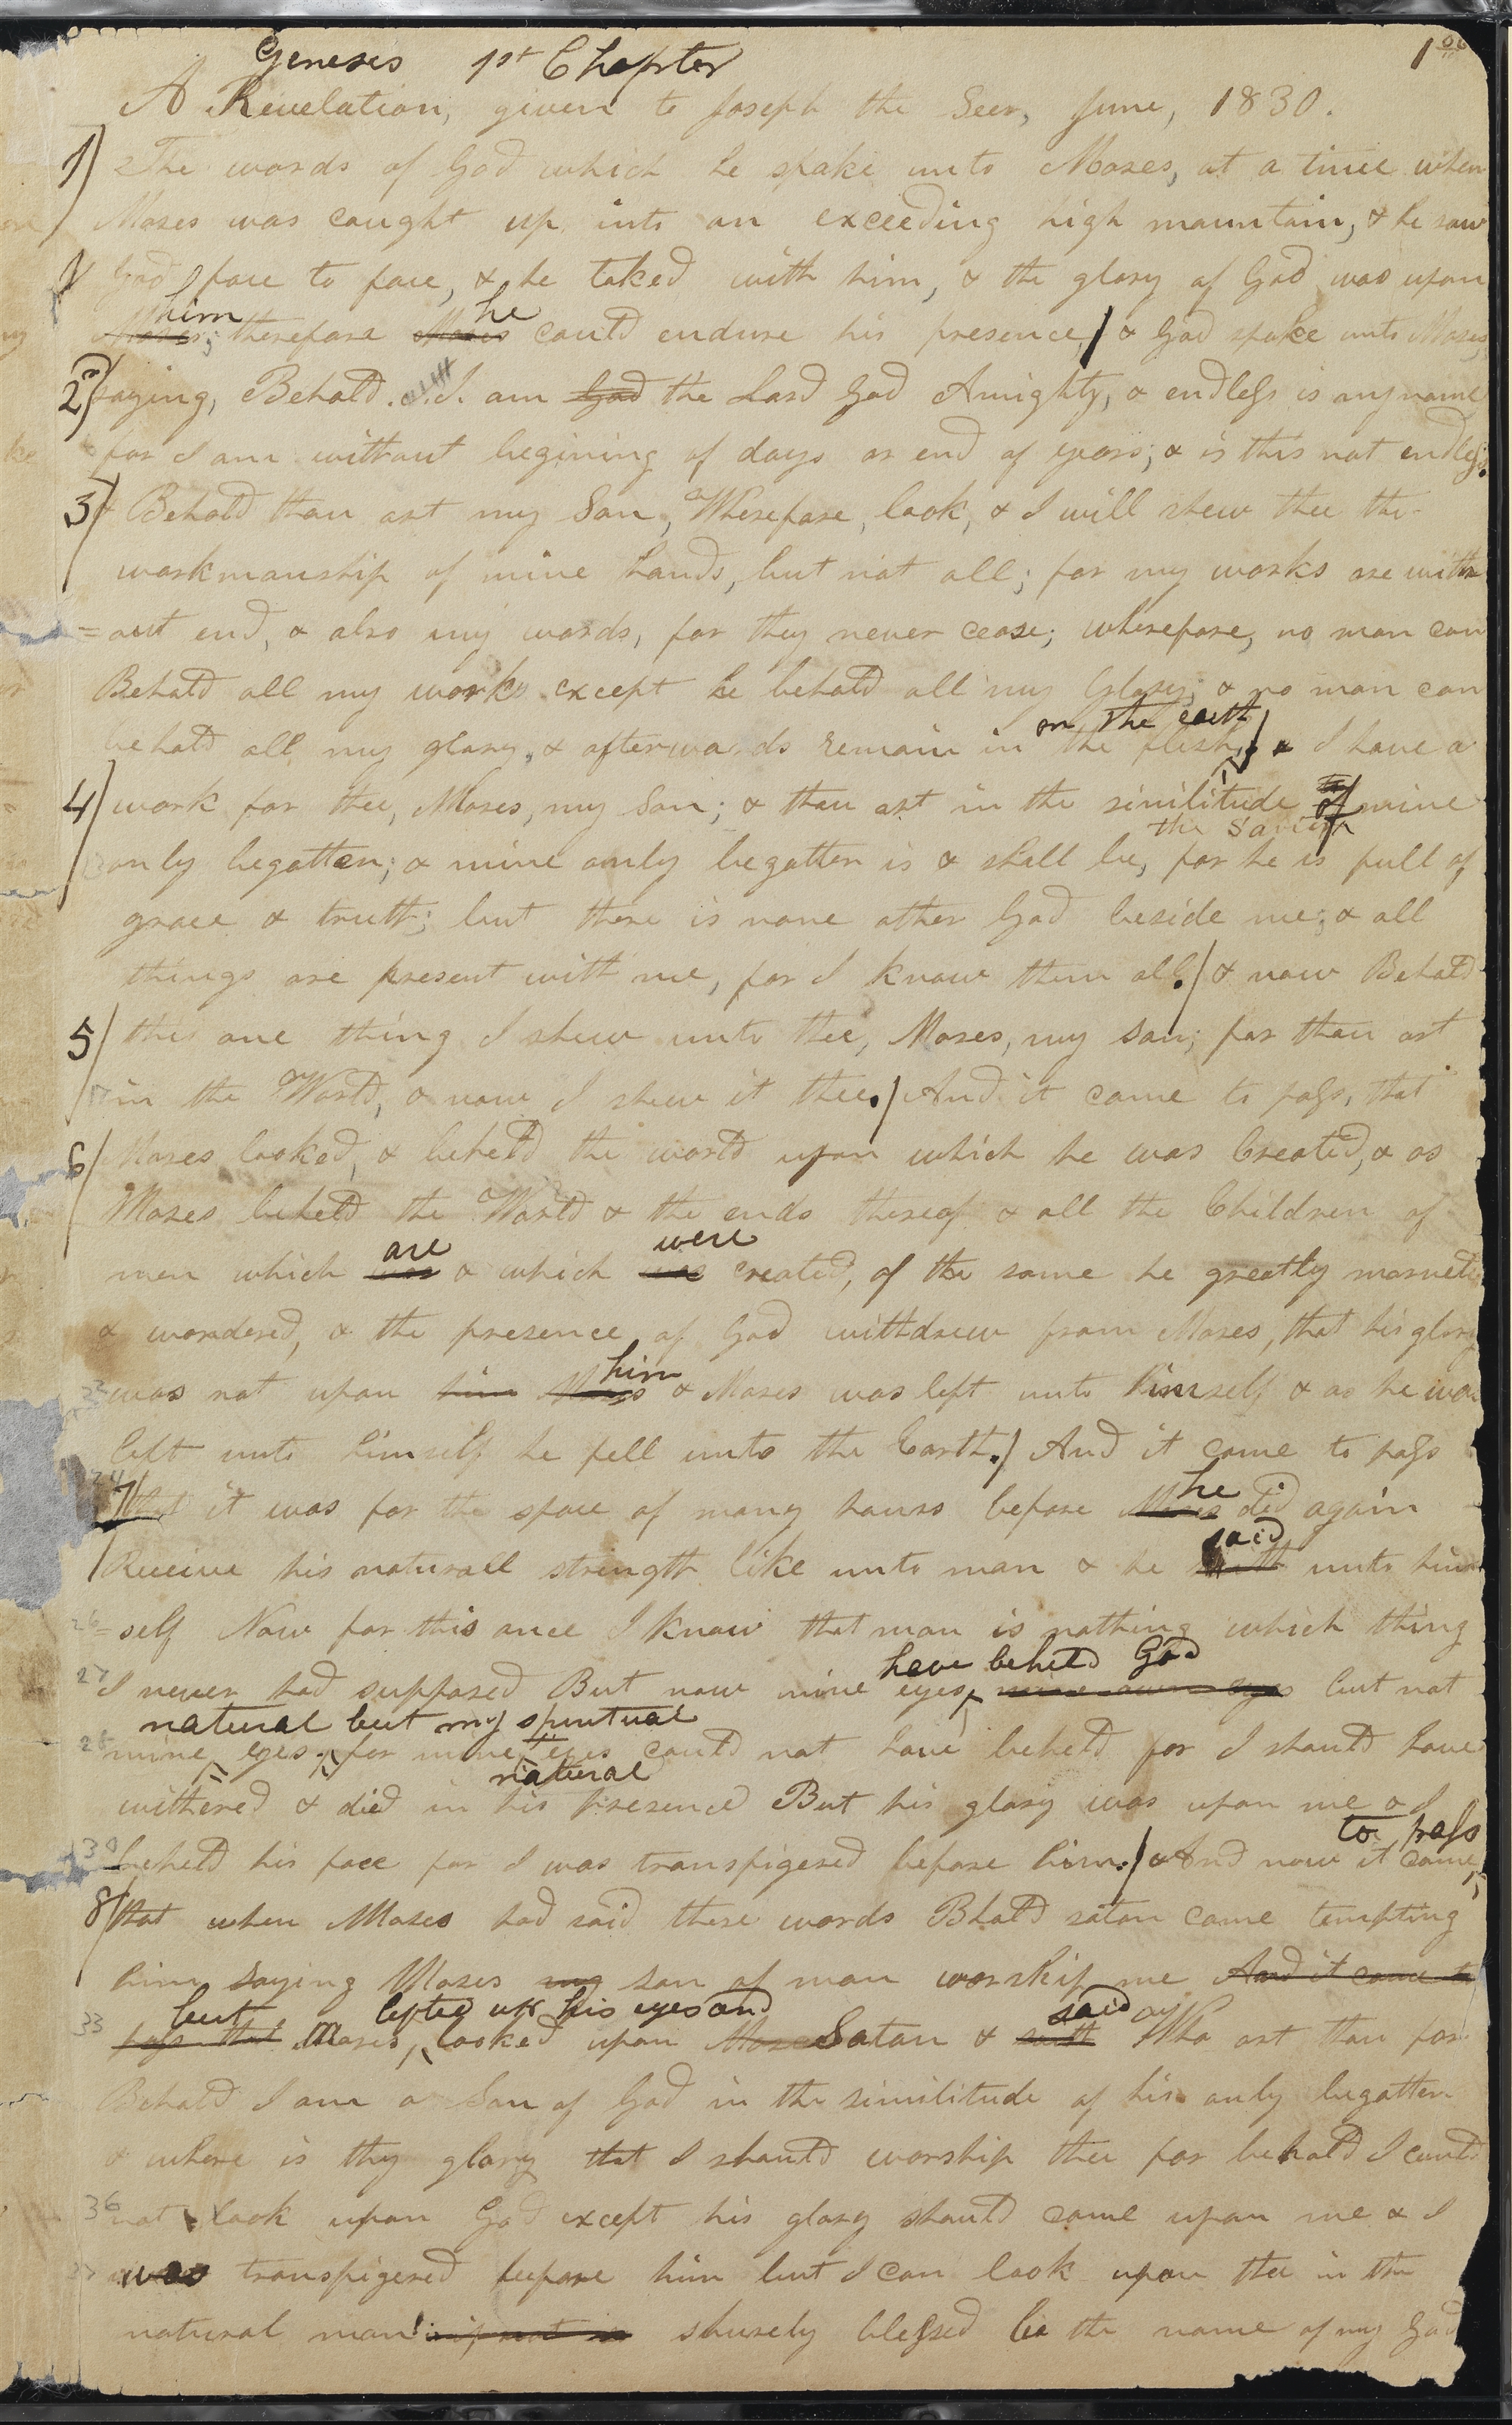 Genesis 1st Chapter
A Revelation, given to Joseph the Seer, June, 1830.
1) The words of God which he spake unto Moses, at a time when
Moses was caught up into an exceeding high mountain, & he saw
God face to face, & he talked with him, & the glory of God was upon
him he
Moses; therefore Moses could endure his presence / & God spake unto Moses,
2) saying, Behold I am God the Lord God Amighty, & endless is my name
for I am without begining of days or end of years; & is this not endless.
3) & Behold thou art my Son, Wherefore, look, & I will shew thee the
workmanship of mine hands, but not all; for my works are with
=out end, & also my words, for they never cease; wherefore, no man can
Behold all my works except he behold all my Glory; & no man can
on the earth
behold all my glory, & afterwards remain in the flesh / & I have a
4) work for thee, Moses, my Son; & thou art in the similitude of mine
the Saviour
only begotten; & mine only begotten is & shall be, for he is full of
grace & truth; but there is none other God beside me; & all
things are present with me, for I know them all. / & now Behold
5/ this one thing I shew unto thee, Moses, my son; for thou art
in the World, & now I shew it thee. / And it came to pass, that
6/ Moses looked, & beheld the world upon which he was Created, & as
Moses beheld the World & the ends thereof & all the Children of
are were
men which was & which was created, of the same he greatly marveled
& wondered, & the presence of God withdrew from Moses, that his glory
him
was not upon him Moses & Moses was left unto himself & as he was
left unto himself he fell unto the Earth. / And it came to pass
he
7/ that it was for the space of many hours before Moses did again
said
Receive his naturall strength like unto man & he saith unto him
26 = self Now for this once I know that man is nothing which thing
have beheld God
27 I never had supposed But now mine eyes, mine own eyes but not
natural but my spiritual
mine eyes for mine eyes could not have beheld for I should have
natural
withered & died in his presence But his glory was upon me & I
to pass
beheld his face for I was transfigered before him. / & And now it came
8/ that when Moses had said these words Bhold satan came tempting
him saying Moses my son of man worship me And it came to
but lifted up his eyes and said
33 pass that Moses, looked upon Satan & saith Who art thou for
Behold I am a Son of God in the similitude of his only begotten
& where is thy glory that I should worship thee for behold I could
36 not look upon God except his glory should come upon me & I
was transfigered before him but I can look upon thee in the
natural man if not so shurely blessed be the name of my God